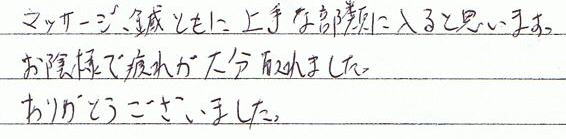 マッサージ、鍼ともに上手な部類に入ると思います。
お陰様で疲れが大分取れました。
ありがとうございました。